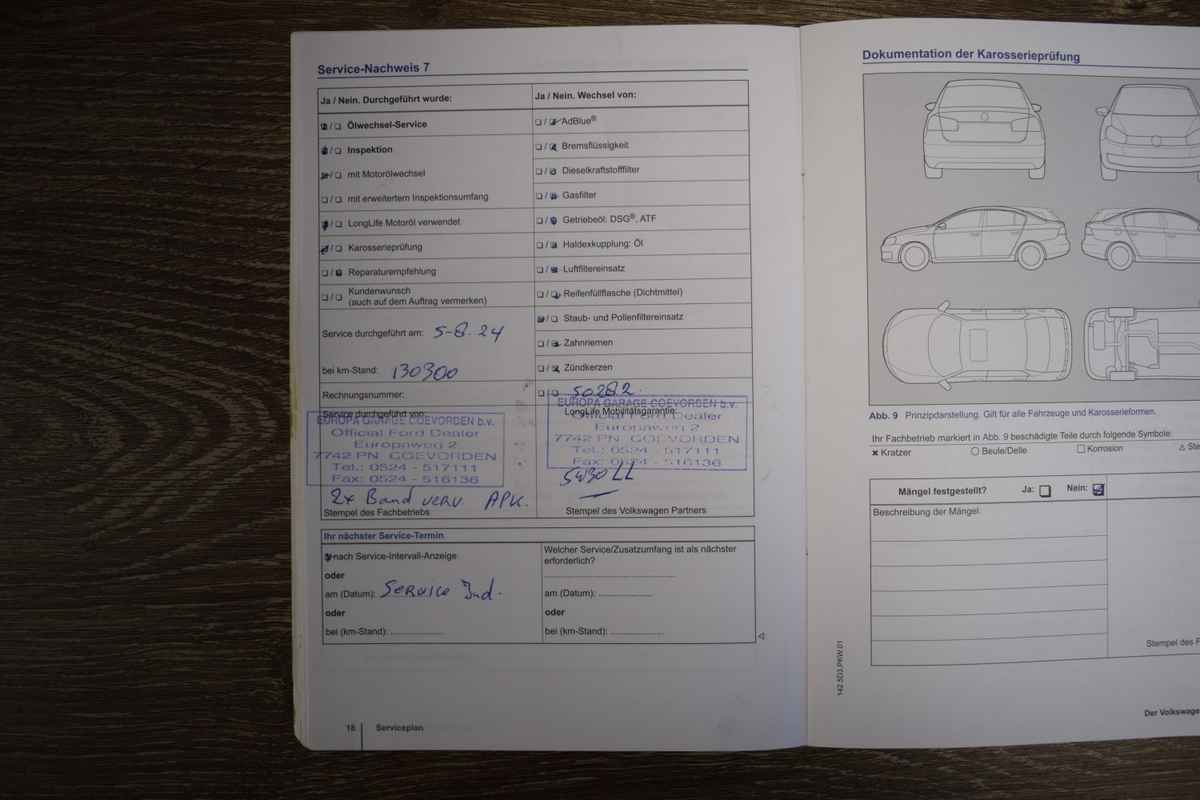 Service-Nachweis 7
Ja / Nein. Durchgeführt wurde:
Ölwechsel-Service
Inspektion
mit Motorölwechsel
mit erweitertem Inspektionsumfang
LongLife Motoröl verwendet
Karosserieprüfung
Reparaturempfehlung
Kundenwunsch
(auch auf dem Auftrag vermerken)
Service durchgeführt am: 5-8-24
bei km-Stand: 130300
Rechnungsnummer:
Service durchgeführt von:
EUROPA GARAGE COEVORDEN b.v.
Official Ford Dealer
Europaweg 2
7742 PN COEVORDEN
Tel.: 0524 - 517111
Fax: 0524 - 516136
2x Band verv APK.
Stempel des Fachbetriebs
Ja / Nein. Wechsel von:
AdBlue®
Bremsflüssigkeit
Dieselkraftstofffilter
Gasfilter
Getriebeöl: DSG®, ATF
Haldexkupplung: Öl
Luftfiltereinsatz
Reifenfüllflasche (Dichtmittel)
Staub- und Pollenfiltereinsatz
Zahnriemen
Zündkerzen
50282
LongLife Mobilitätsgarantie:
EUROPA GARAGE COEVORDEN b.v.
Official Ford Dealer
Europaweg 2
7742 PN COEVORDEN
Tel.: 0524 - 517111
Fax: 0524 - 516136
5W30 LL
Stempel des Volkswagen Partners
Ihr nächster Service-Termin
nach Service-Intervall-Anzeige
oder
am (Datum): Service Ind.
oder
bei (km-Stand):
Welcher Service/Zusatzumfang ist als nächster
erforderlich?
am (Datum):
oder
bei (km-Stand):
18 Serviceplan
Dokumentation der Karosserieprüfung
Abb. 9 Prinzipdarstellung. Gilt für alle Fahrzeuge und Karosserieformen.
Ihr Fachbetrieb markiert in Abb. 9 beschädigte Teile durch folgende Symbole:
Kratzer
Beule/Delle
Korrosion
Mängel festgestellt? Ja: Nein:
Beschreibung der Mängel:
Stempel des F
142.5D3.PKW.01
Der Volkswage